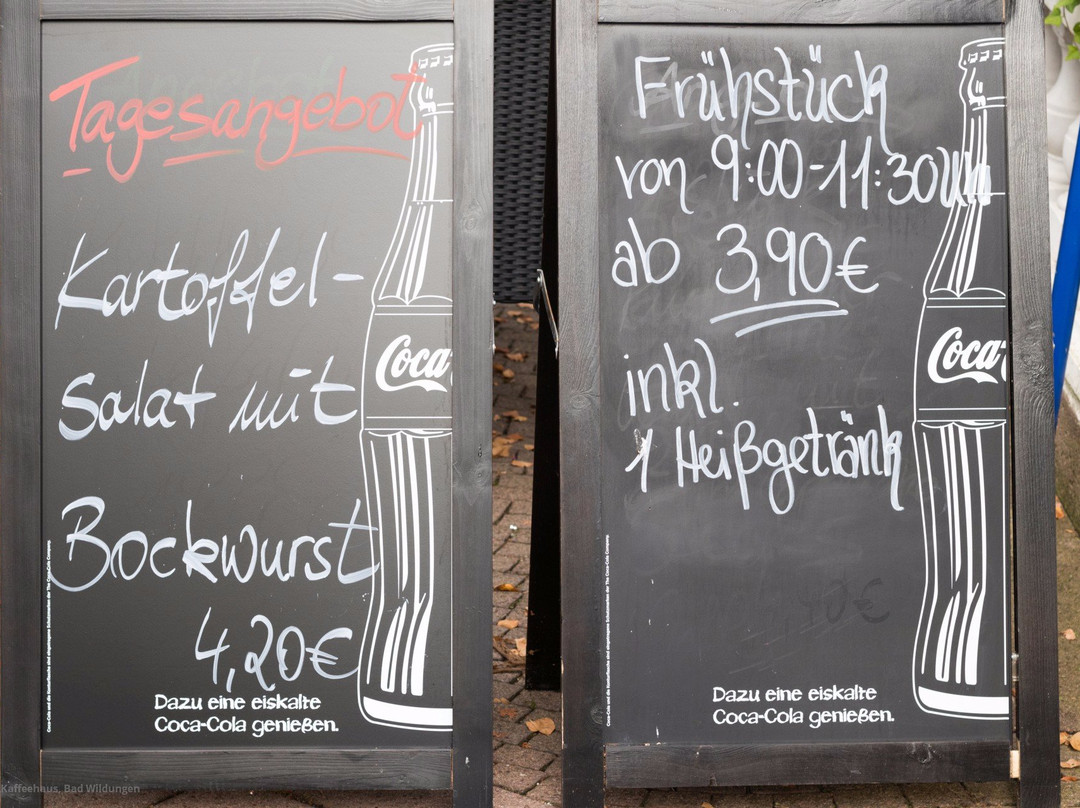 Tagesangebot
Kartoffel-
Salat mit
Bockwurst
4,20€
Coca
Dazu eine eiskalte
Coca-Cola genießen.
Frühstück
von 9:00-11:30Uhr
ab 3,90€
inkl.
1 Heißgetränk
Coca
Dazu eine eiskalte
Coca-Cola genießen.
Kaffeehaus, Bad Wildungen